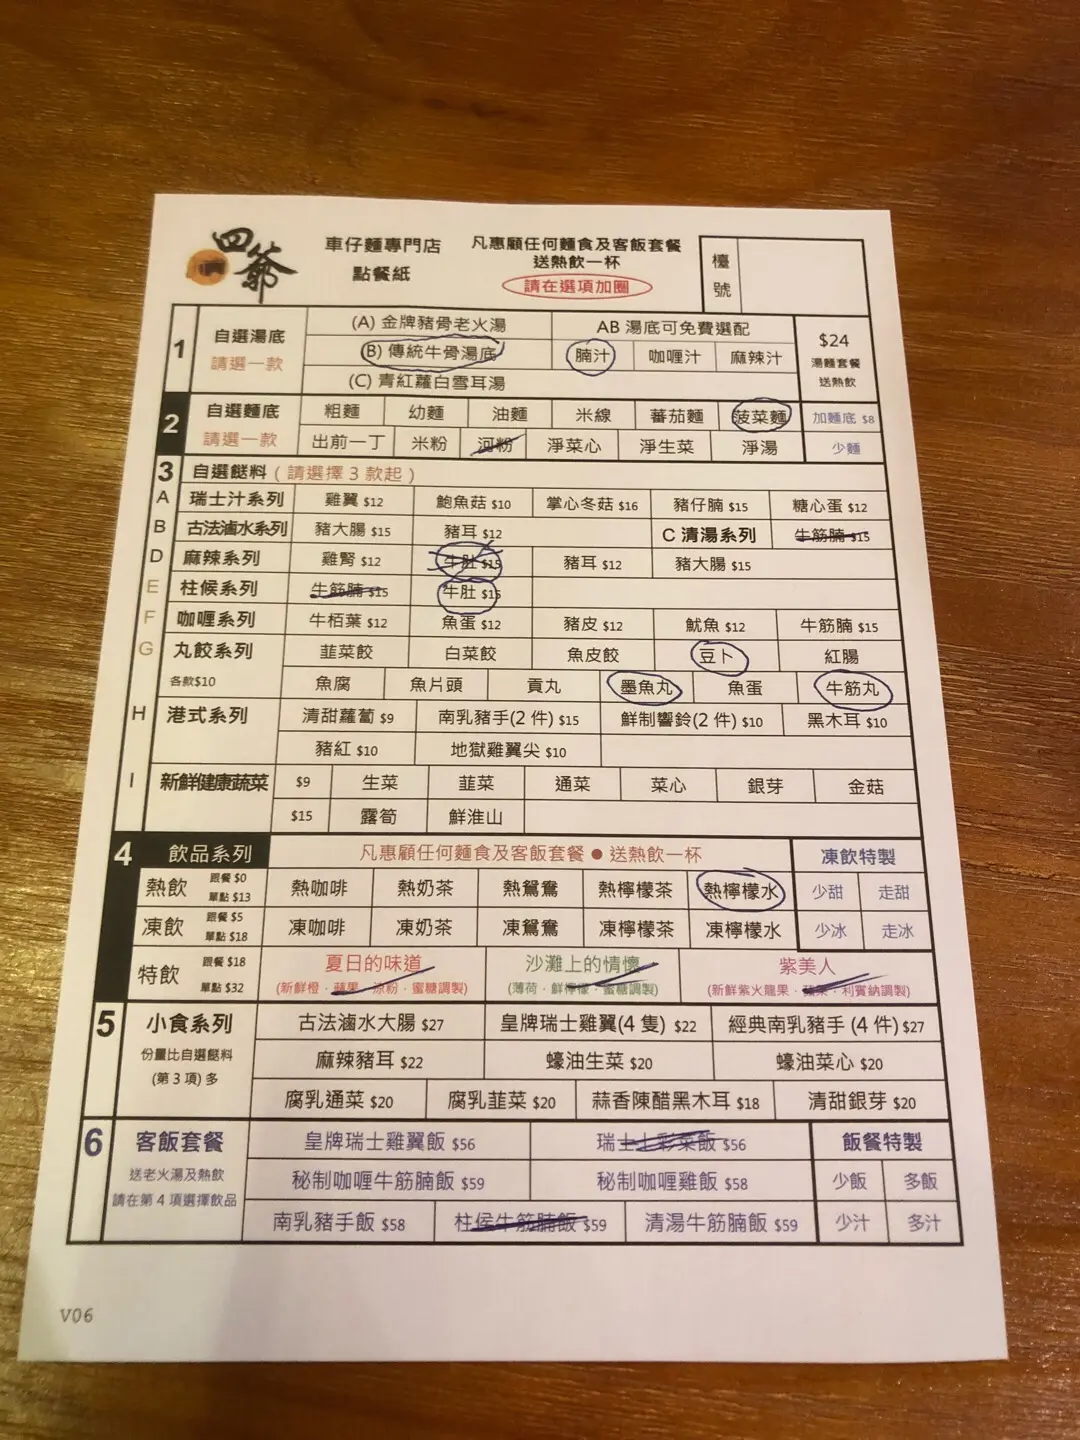 四爺
車仔麵專門店
點餐紙
凡惠顧任何麵食及客飯套餐
送熱飲一杯
請在選項加圈
檯號
1 自選湯底 請選一款
(A) 金牌豬骨老火湯 AB 湯底可免費選配
(B) 傳統牛骨湯底 腩汁 咖喱汁 麻辣汁
(C) 青紅蘿白雪耳湯
$24 湯麵套餐 送熱飲
2 自選麵底 請選一款
粗麵 幼麵 油麵 米線 蕃茄麵 菠菜麵 加麵底 $8
出前一丁 米粉 河粉 淨菜心 淨生菜 淨湯 少麵
3 自選餸料 (請選擇 3 款起)
A 瑞士汁系列 雞翼 $12 鮑魚菇 $10 掌心冬菇 $16 豬仔腩 $15 糖心蛋 $12
B 古法滷水系列 豬大腸 $15 豬耳 $12 C 清湯系列 牛筋腩 $15
D 麻辣系列 雞腎 $12 牛肚 $15 豬耳 $12 豬大腸 $15
E 柱候系列 牛筋腩 $15 牛肚 $15
F 咖喱系列 牛栢葉 $12 魚蛋 $12 豬皮 $12 魷魚 $12 牛筋腩 $15
G 丸餃系列 韮菜餃 白菜餃 魚皮餃 豆卜 紅腸
各款$10 魚腐 魚片頭 貢丸 墨魚丸 魚蛋 牛筋丸
H 港式系列 清甜蘿蔔 $9 南乳豬手(2 件) $15 鮮制響鈴(2 件) $10 黑木耳 $10
豬紅 $10 地獄雞翼尖 $10
I 新鮮健康蔬菜 $9 生菜 韮菜 通菜 菜心 銀芽 金菇
$15 露筍 鮮淮山
4 飲品系列 凡惠顧任何麵食及客飯套餐 ● 送熱飲一杯 凍飲特製
熱飲 跟餐 $0 單點 $13 熱咖啡 熱奶茶 熱鴛鴦 熱檸檬茶 熱檸檬水 少甜 走甜
凍飲 跟餐 $5 單點 $18 凍咖啡 凍奶茶 凍鴛鴦 凍檸檬茶 凍檸檬水 少冰 走冰
特飲 跟餐 $18 單點 $32 夏日的味道 沙灘上的情懷 紫美人
(新鮮橙．蘋果．涼粉．蜜糖調製) (薄荷．鮮檸檬．蜜糖調製) (新鮮紫火龍果．蘋果．利賓納調製)
5 小食系列 古法滷水大腸 $27 皇牌瑞士雞翼(4 隻) $22 經典南乳豬手 (4 件) $27
份量比自選餸料 麻辣豬耳 $22 蠔油生菜 $20 蠔油菜心 $20
(第 3 項) 多 腐乳通菜 $20 腐乳韮菜 $20 蒜香陳醋黑木耳 $18 清甜銀芽 $20
6 客飯套餐 皇牌瑞士雞翼飯 $56 瑞士七彩菜飯 $56 飯餐特製
送老火湯及熱飲 秘制咖喱牛筋腩飯 $59 秘制咖喱雞飯 $58 少飯 多飯
請在第 4 項選擇飲品 南乳豬手飯 $58 柱侯牛筋腩飯 $59 清湯牛筋腩飯 $59 少汁 多汁
V06